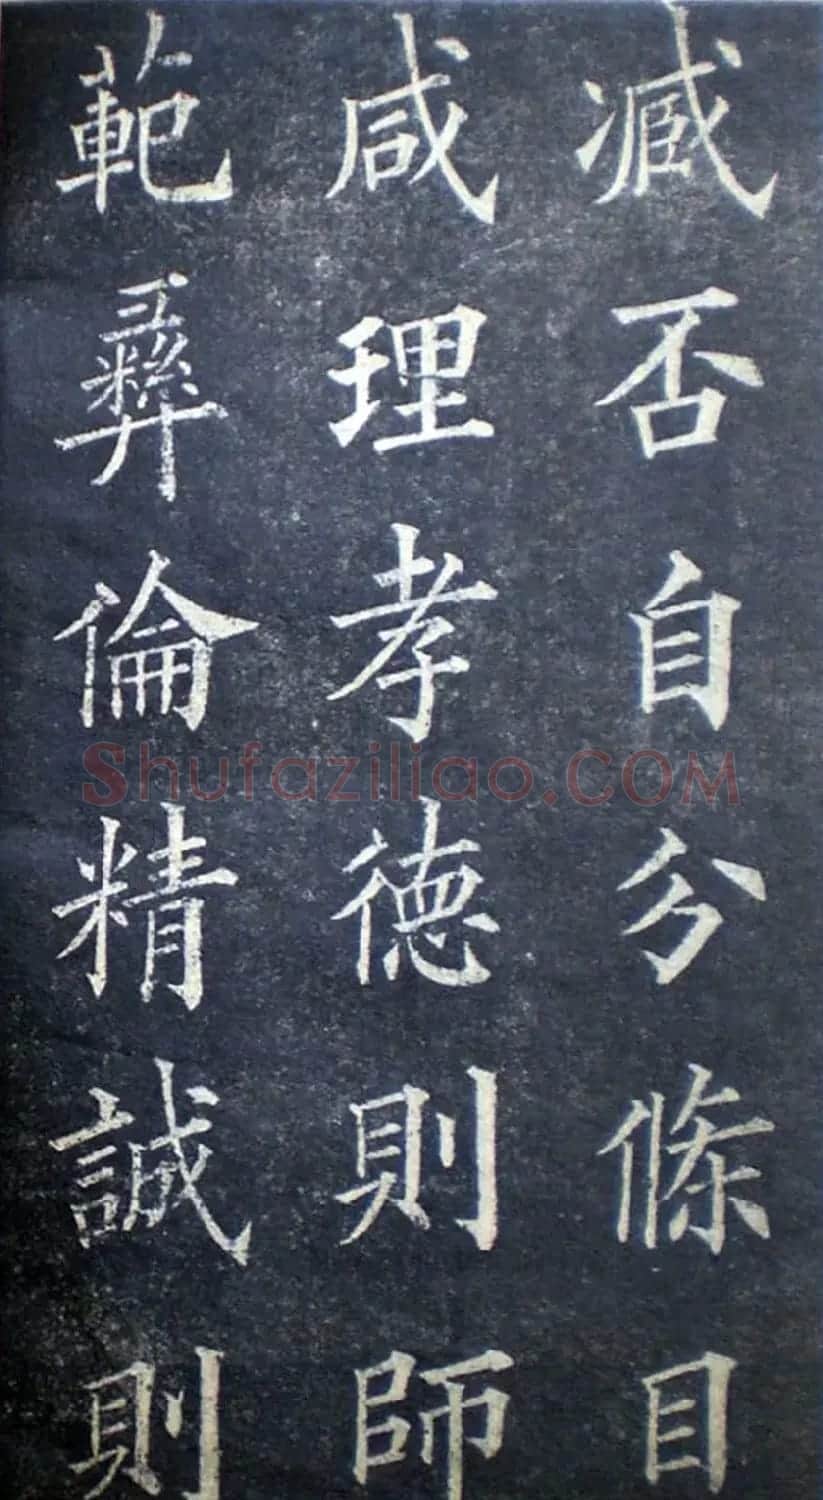 臧否自分條目
咸理孝德則師
範彝倫精誠則
Shufaziliao.COM